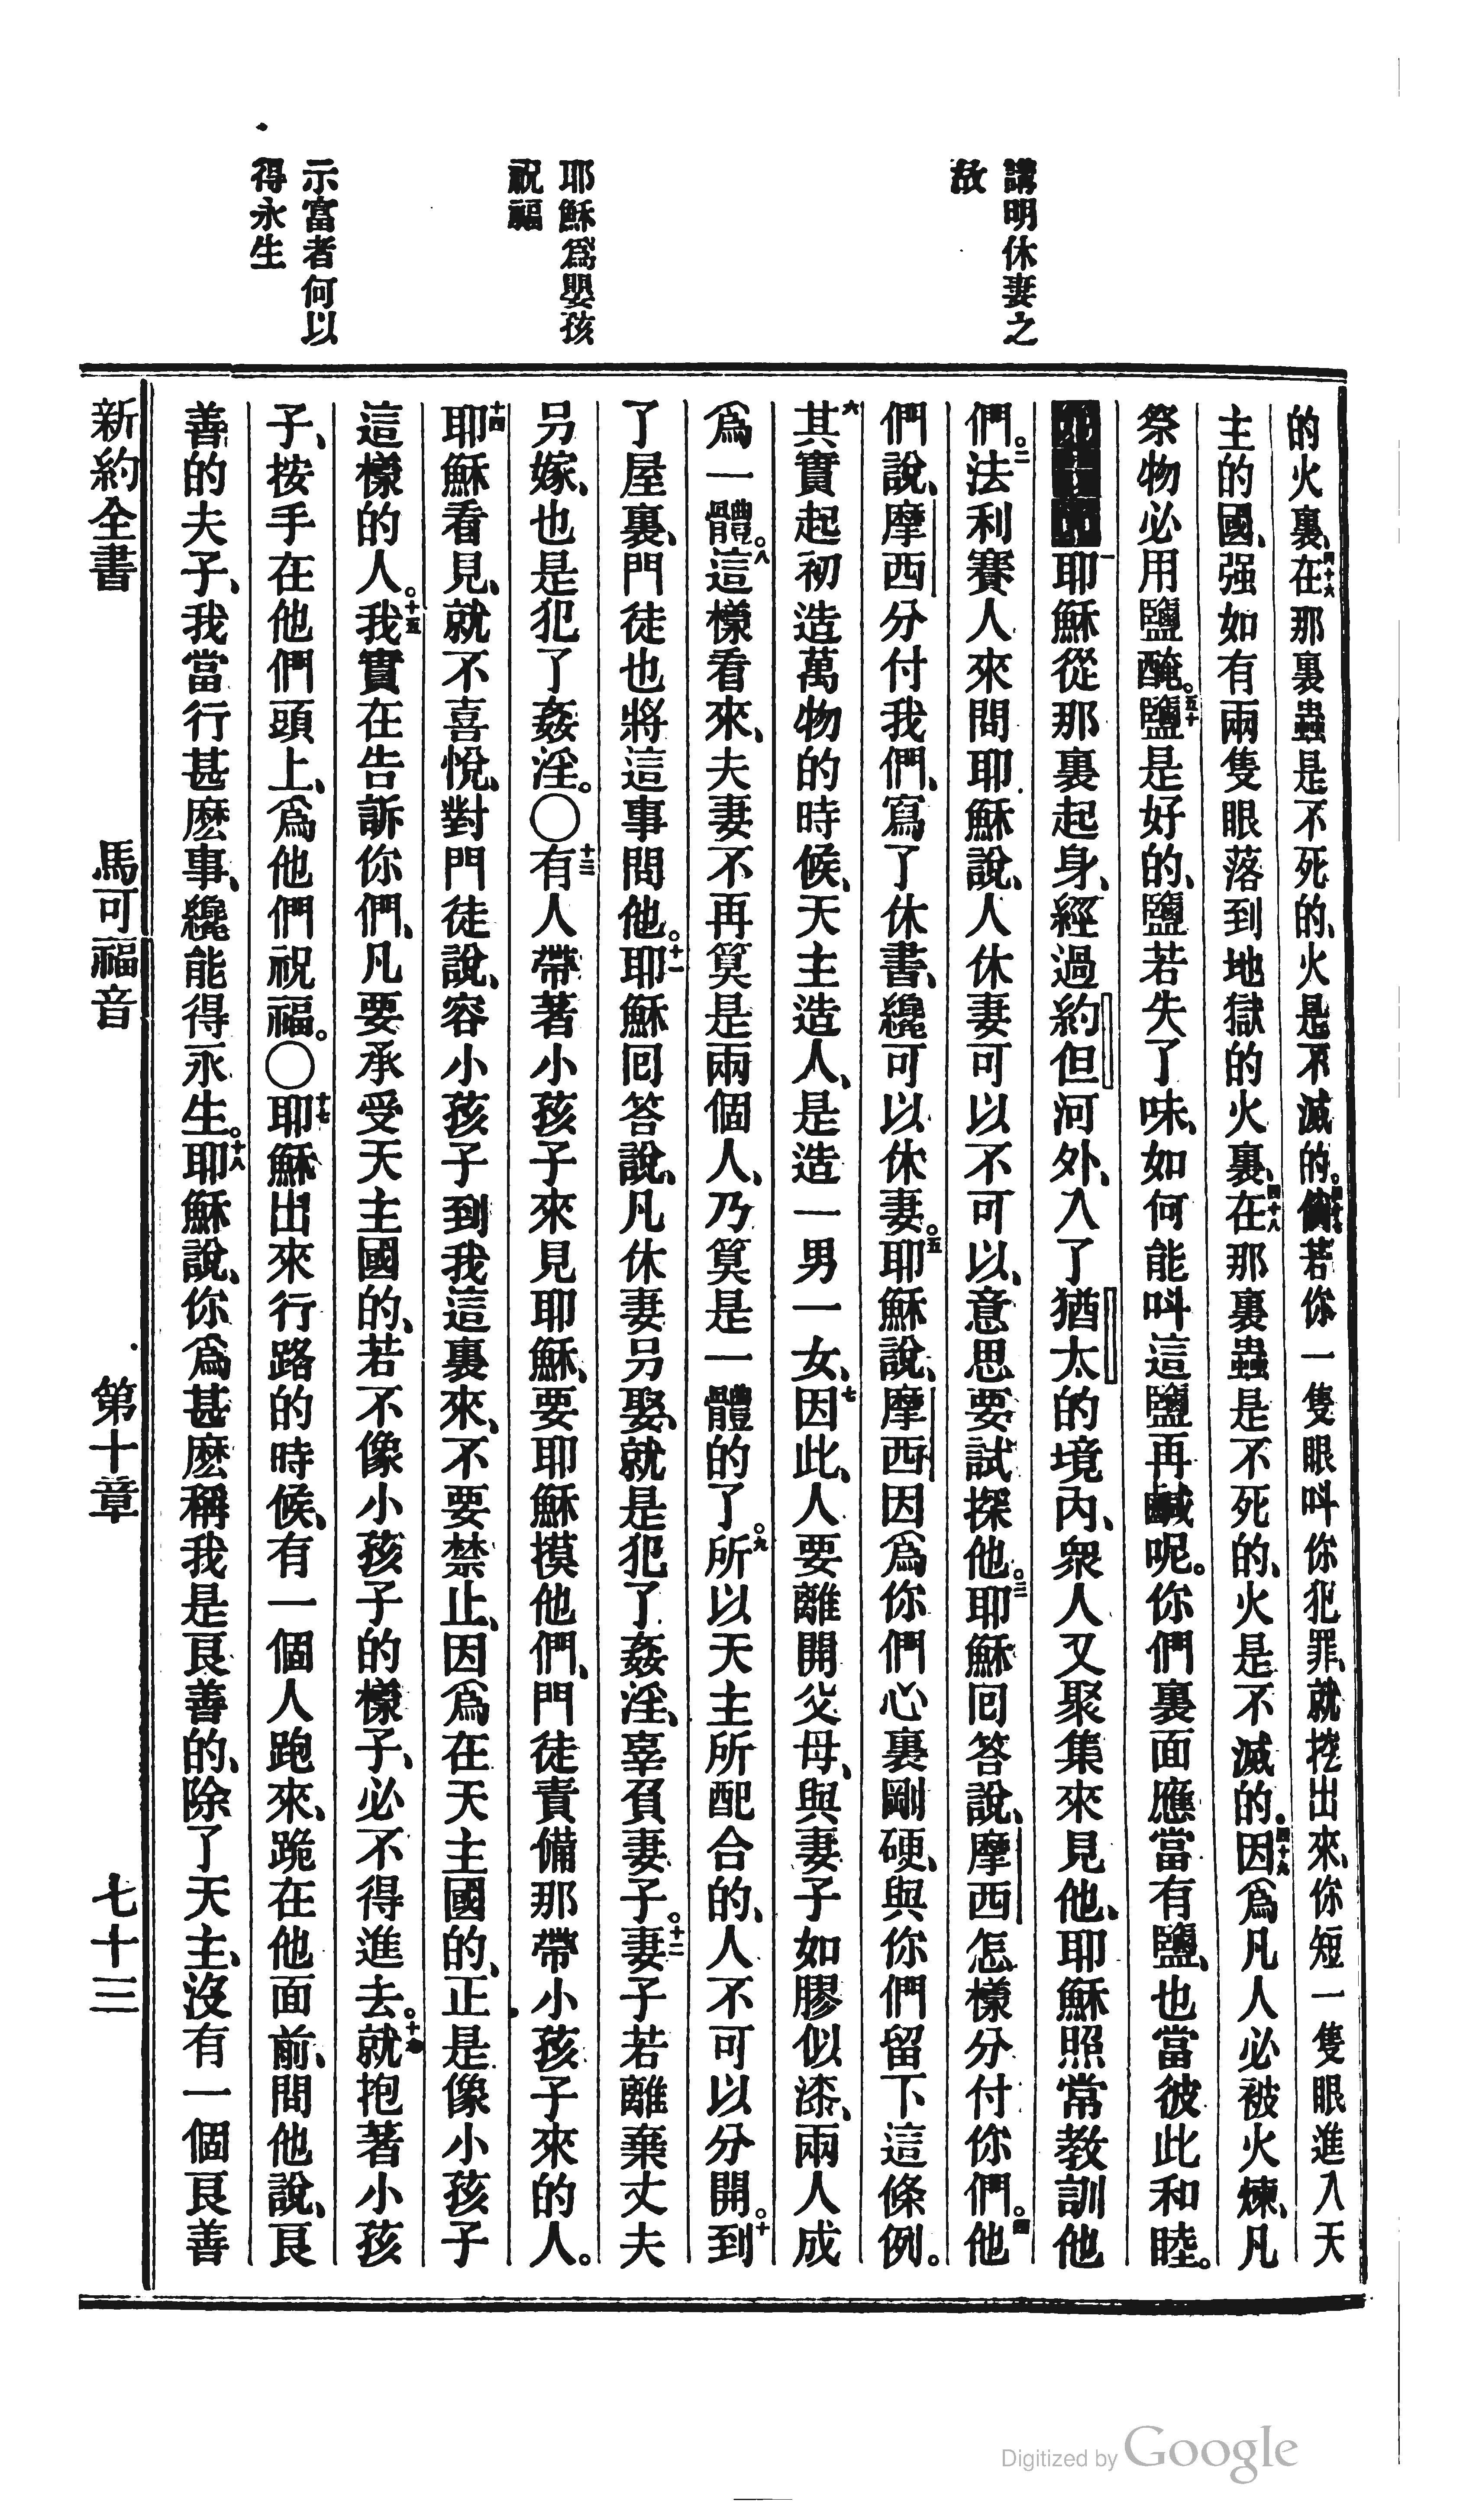 講明休妻之
故
耶穌爲嬰孩
祝福
示富者何以
得永生
的火裏、四十六在那裏蟲是不死的、火是不滅的。倘若你一隻眼叫你犯罪、就挖出來、你短一隻眼進入天
主的國、强如有兩隻眼落到地獄的火裏、四十八在那裏蟲是不死的、火是不滅的。四十九因爲凡人必被火煉、凡
祭物必用鹽醃。五十鹽是好的、鹽若失了味、如何能叫這鹽再鹹呢。你們裏面應當有鹽、也當彼此和睦。
一耶穌從那裏起身、經過約但河外、入了猶太的境內、衆人又聚集來見他、耶穌照常教訓他
們。二法利賽人來問耶穌說、人休妻可以不可以、意思要試探他。三耶穌回答說、摩西怎樣分付你們。四他
們說、摩西分付我們、寫了休書、纔可以休妻。五耶穌說、摩西因爲你們心裏剛硬、與你們留下這條例。
六其實起初造萬物的時候、天主造人、是造一男一女、七因此、人要離開父母、與妻子如膠似漆、兩人成
爲一體。八這樣看來、夫妻不再算是兩個人、乃算是一體的了。九所以天主所配合的、人不可以分開。十到
了屋裏、門徒也將這事問他。十一耶穌回答說、凡休妻另娶、就是犯了姦淫、辜負妻子。十二妻子若離棄丈夫
另嫁、也是犯了姦淫。〇十三有人帶著小孩子來見耶穌、要耶穌摸他們、門徒責備那帶小孩子來的人。
十四耶穌看見、就不喜悅、對門徒說、容小孩子到我這裏來、不要禁止、因爲在天主國的、正是像小孩子
這樣的人。十五我實在告訴你們、凡要承受天主國的、若不像小孩子的樣子、必不得進去。十六就抱著小孩
子、按手在他們頭上、爲他們祝福。〇十七耶穌出來行路的時候、有一個人跑來、跪在他面前、問他說、良
善的夫子、我當行甚麽事、纔能得永生。十八耶穌說、你爲甚麽稱我是良善的、除了天主、沒有一個良善
新約全書　馬可福音　第十章　七十三
Digitized by Google